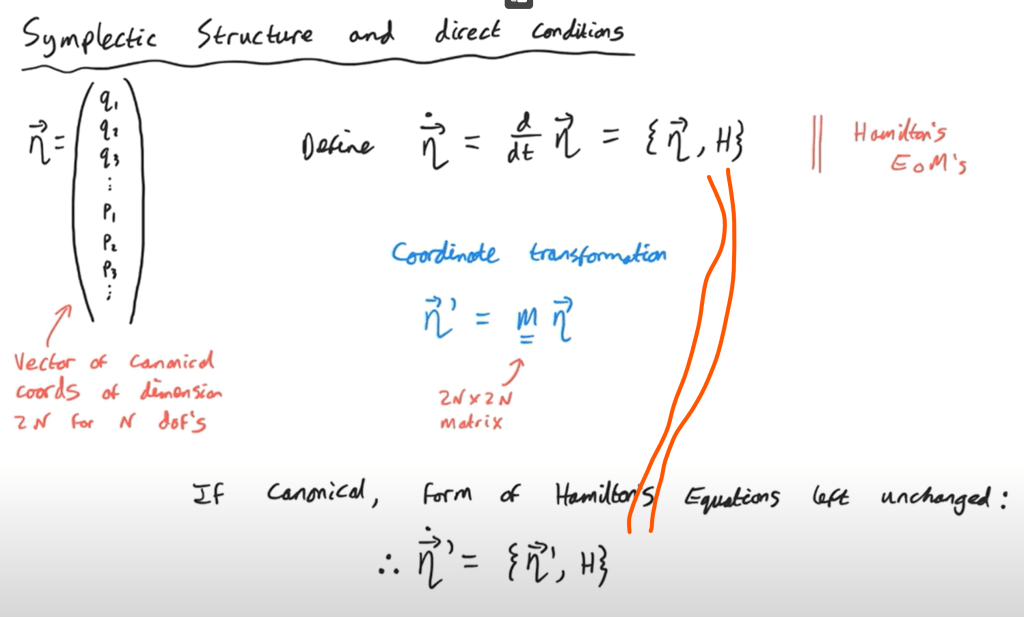 Symplectic Structure and direct conditions
η⃗ = (q₁ q₂ q₃ ⋮ p₁ p₂ p₃ ⋮)
Define η⃗̇ = d/dt η⃗ = {η⃗, H} || Hamilton's
EoM's
Coordinate transformation
η⃗' = m η⃗
2N×2N
matrix
Vector of canonical
coords of dimension
2N for N dof's
If canonical, form of Hamilton's Equations left unchanged:
∴ η⃗̇' = {η⃗', H}